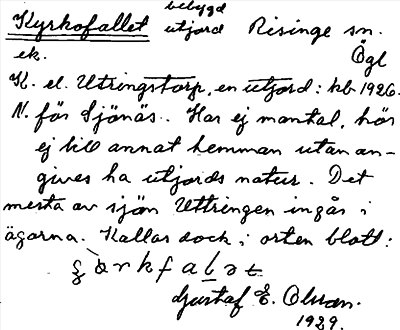 Kyrkofallet bebygd utjord Risinge sn.
ek. Ögl
K. el. Uttringstorp, en utjord: kb 1926.
N. för Sjönäs. Har ej mantal, hör
ej till annat hemman utan an-
gives ha utjords natur. Det
mesta av sjön Uttringen ingår i
ägorna. Kallas dock i orten blott:
Gustaf E. Olsson.
1929.